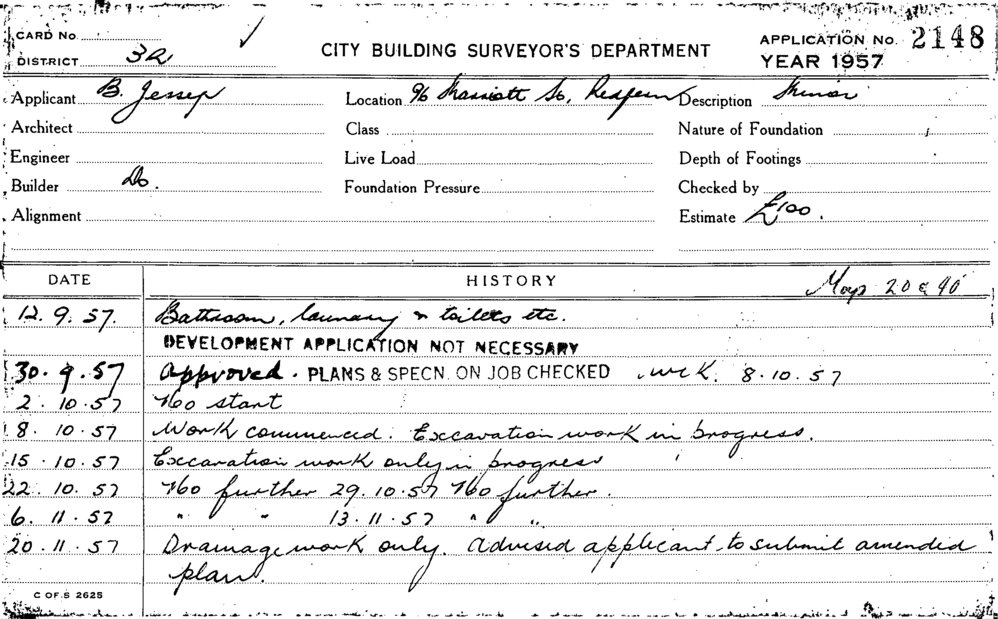 CARD No.
DISTRICT 32
CITY BUILDING SURVEYOR'S DEPARTMENT
APPLICATION No. 2148
YEAR 1957
Applicant B. Jessep Location 96 Marriott St, Redfern Description Minor
Architect Class Nature of Foundation
Engineer Live Load Depth of Footings
Builder Do. Foundation Pressure Checked by
Alignment Estimate £100.
DATE HISTORY Map 20 & 90
12. 9. 57. Bathroom, laundry & toilets etc.
DEVELOPMENT APPLICATION NOT NECESSARY
30. 9. 57 Approved. PLANS & SPECN. ON JOB CHECKED 8.10.57
2. 10. 57 No start
8. 10. 57 Work commenced. Excavation work in progress.
15. 10. 57 Excavation work only in progress
22. 10. 57 No further 29.10.57 No further.
6. 11. 57 " " 13.11.57 " "
20. 11. 57 Drainage work only. Advised applicant to submit amended
plan.
C OF S 2625